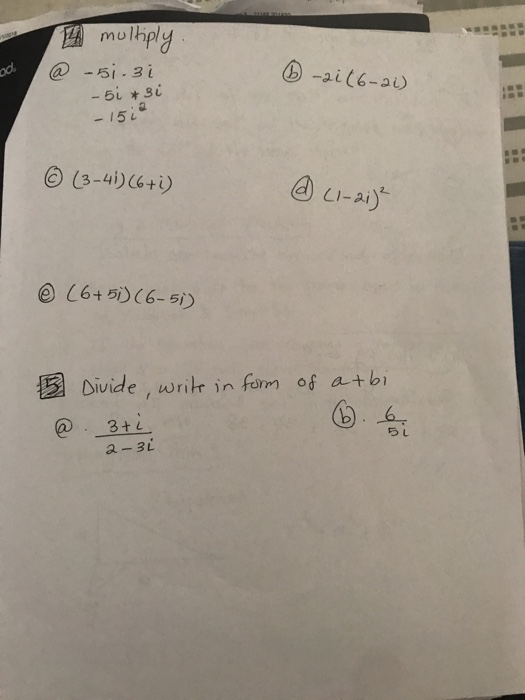 4 multiply.
ⓐ -5i · 3i
-5i * 3i
-15i²
ⓑ -2i(6-2i)
ⓒ (3-4i)(6+i)
ⓓ (1-2i)²
ⓔ (6+5i)(6-5i)
5 Divide, write in form of a+bi
ⓐ. 3+i
2-3i
ⓑ. 6
5i